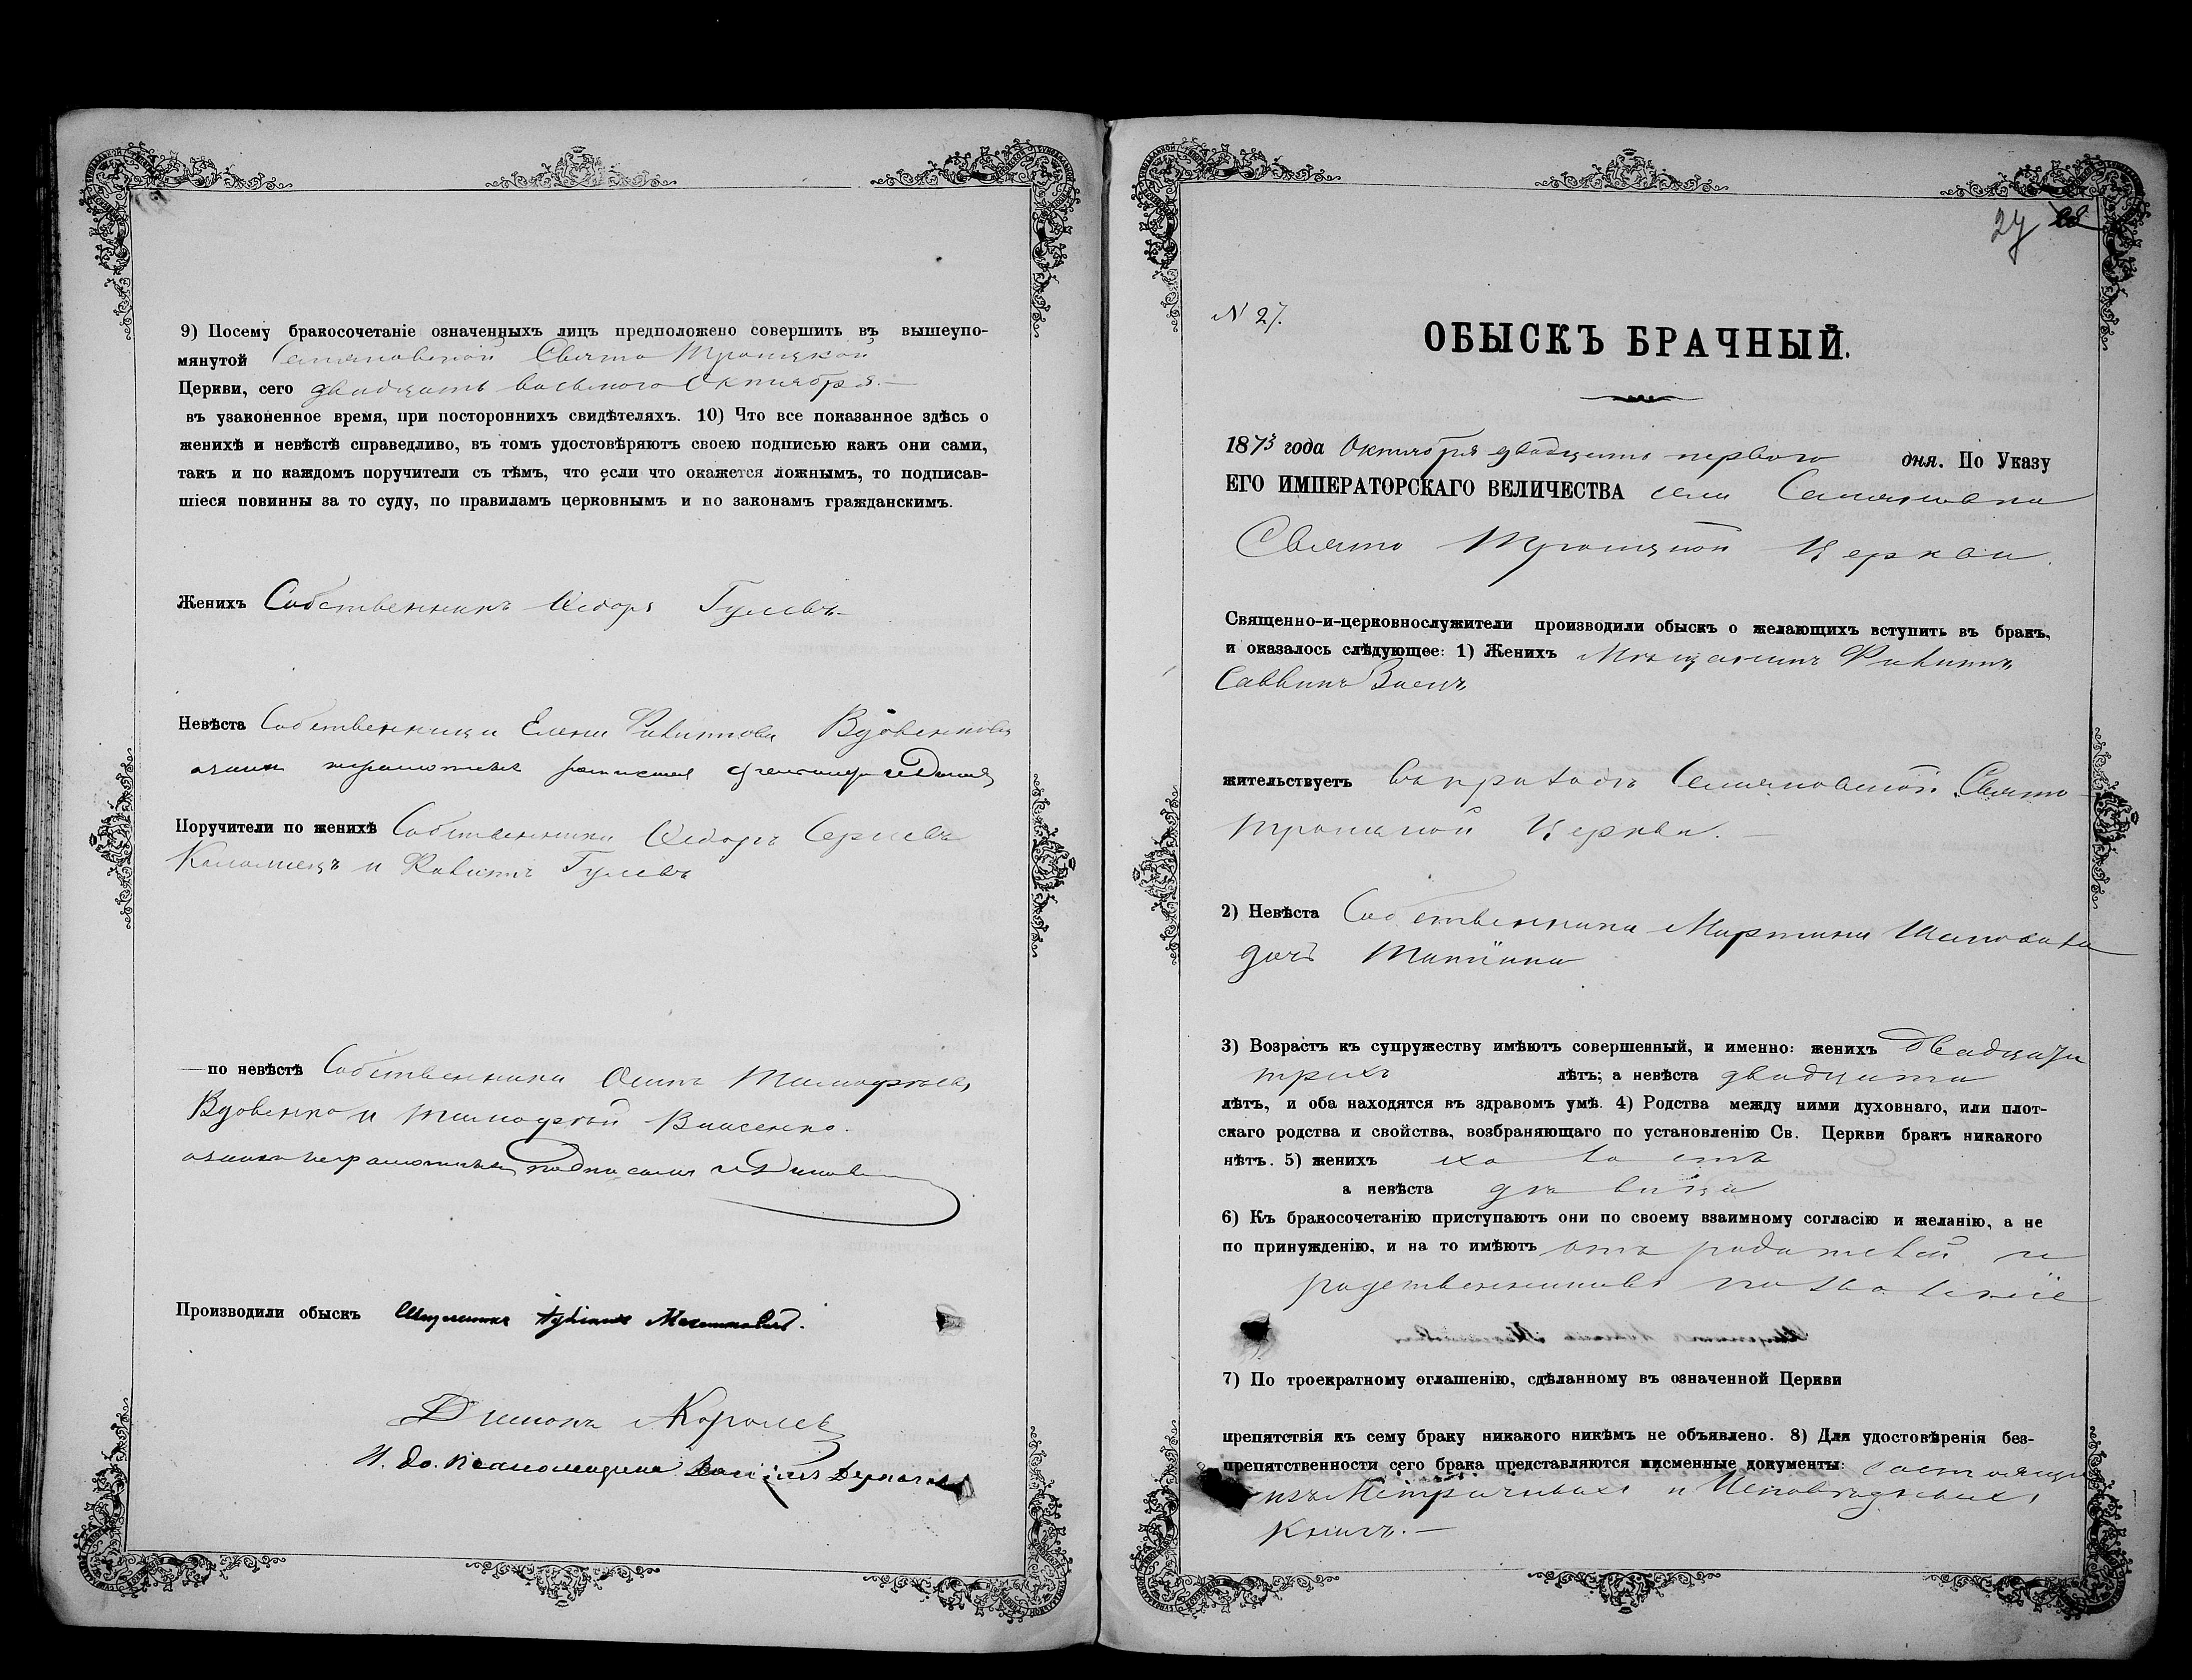 9) Посему бракосочетаніе означенныхъ лицъ предположено совершить въ вышеупо-
мянутой Семяновской Свято Троицкой
Церкви, сего двадцать восьмого Октября.—
въ узаконенное время, при постороннихъ свидѣтеляхъ. 10) Что все показанное здѣсь о
женихѣ и невѣстѣ справедливо, въ томъ удостовѣряютъ своею подписью какъ они сами,
такъ и по каждомъ поручители съ тѣмъ, что если что окажется ложнымъ, то подписав-
шіеся повинны за то суду, по правиламъ церковнымъ и по законамъ гражданскимъ.
Женихъ Собственникъ Ѳедоръ Гулевъ
Невѣста Собственница Елена Филиппова Вдовенкова
Поручители по женихѣ Собственники Ѳедоръ Сергѣевъ
Коломіецъ и Филиппъ Гулевъ
— по невѣстѣ Собственники Осипъ Тимофѣевъ
Вдовенко и Тимофѣй Власенко.
Производили обыскъ Священникъ
Дьяконъ Королев
И. до. Псаломщика Василій
27
N 27.
ОБЫСКЪ БРАЧНЫЙ.
1873 года Октября двадцать первого дня. По Указу
ЕГО ИМПЕРАТОРСКАГО ВЕЛИЧЕСТВА села Семяновки
Свято Троицкой Церкви.
Священно-и-церковнослужители производили обыскъ о желающихъ вступить въ бракъ,
и оказалось слѣдующее: 1) Женихъ Мѣщанинъ Филиппъ
Саввинъ Заецъ
жительствуетъ въ приходѣ Семяновской Свято
Троицкой Церкви.—
2) Невѣста Собственника Мартина Шаповала
дочь Татіана
3) Возрастъ къ супружеству имѣютъ совершенный, и именно: женихъ двадцати
трихъ лѣтъ; а невѣста двадцати
лѣтъ, и оба находятся въ здравомъ умѣ. 4) Родства между ними духовнаго, или плот-
скаго родства и свойства, возбраняющаго по установленію Св. Церкви бракъ никакого
нѣтъ. 5) женихъ холостъ
а невѣста дѣвица
6) Къ бракосочетанію приступаютъ они по своему взаимному согласію и желанію, а не
по принужденію, и на то имѣютъ отъ родителей и
родственниковъ позволеніе
7) По троекратному оглашенію, сдѣланному въ означенной Церкви
препятствія къ сему браку никакого никѣмъ не объявлено. 8) Для удостовѣренія без-
препятственности сего брака представляются письменные документы:
изъ Метричныхъ и Исповѣдныхъ
книгъ.—